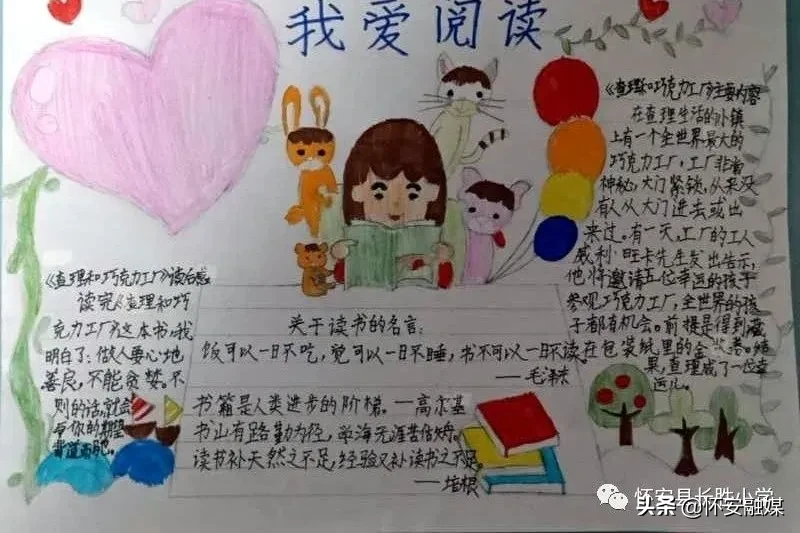 我爱阅读
《查理和巧克力工厂》读后感
读完《查理和巧
克力工厂》这本书,我
明白了:做人要心地
善良,不能贪婪。不
则的话,就会
与你的期望
背道而驰。
关于读书的名言:
饭可以一日不吃,觉可以一日不睡,书不可以一日不读。
——毛泽东
书籍是人类进步的阶梯。——高尔基
书山有路勤为径,学海无涯苦作舟。
读书补天然之不足,经验又补读书之不足。
——培根
《查理和巧克力工厂》主要内容
在查理生活的小镇
上有一个全世界最大的
巧克力工厂,工厂非常
神秘,大门紧锁,从来没
有人从大门进去或出
来过。有一天,工厂的工人
威利·旺卡先生发出告示,
他将邀请五位幸运的孩子
参观巧克力工厂,全世界的孩
子都有机会。前提是得到藏
在包装纸里的金奖券。结
果,查理成了一位幸
运儿。
怀安县长胜小学
头条@怀安融媒